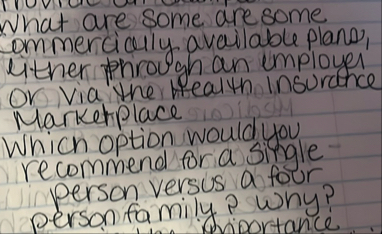 What are some are some
commercially available plans,
either through an employer
or via the Health Insurance
Marketplace
Which option would you
recommend for a single
person versus a four
person family? Why?
importance